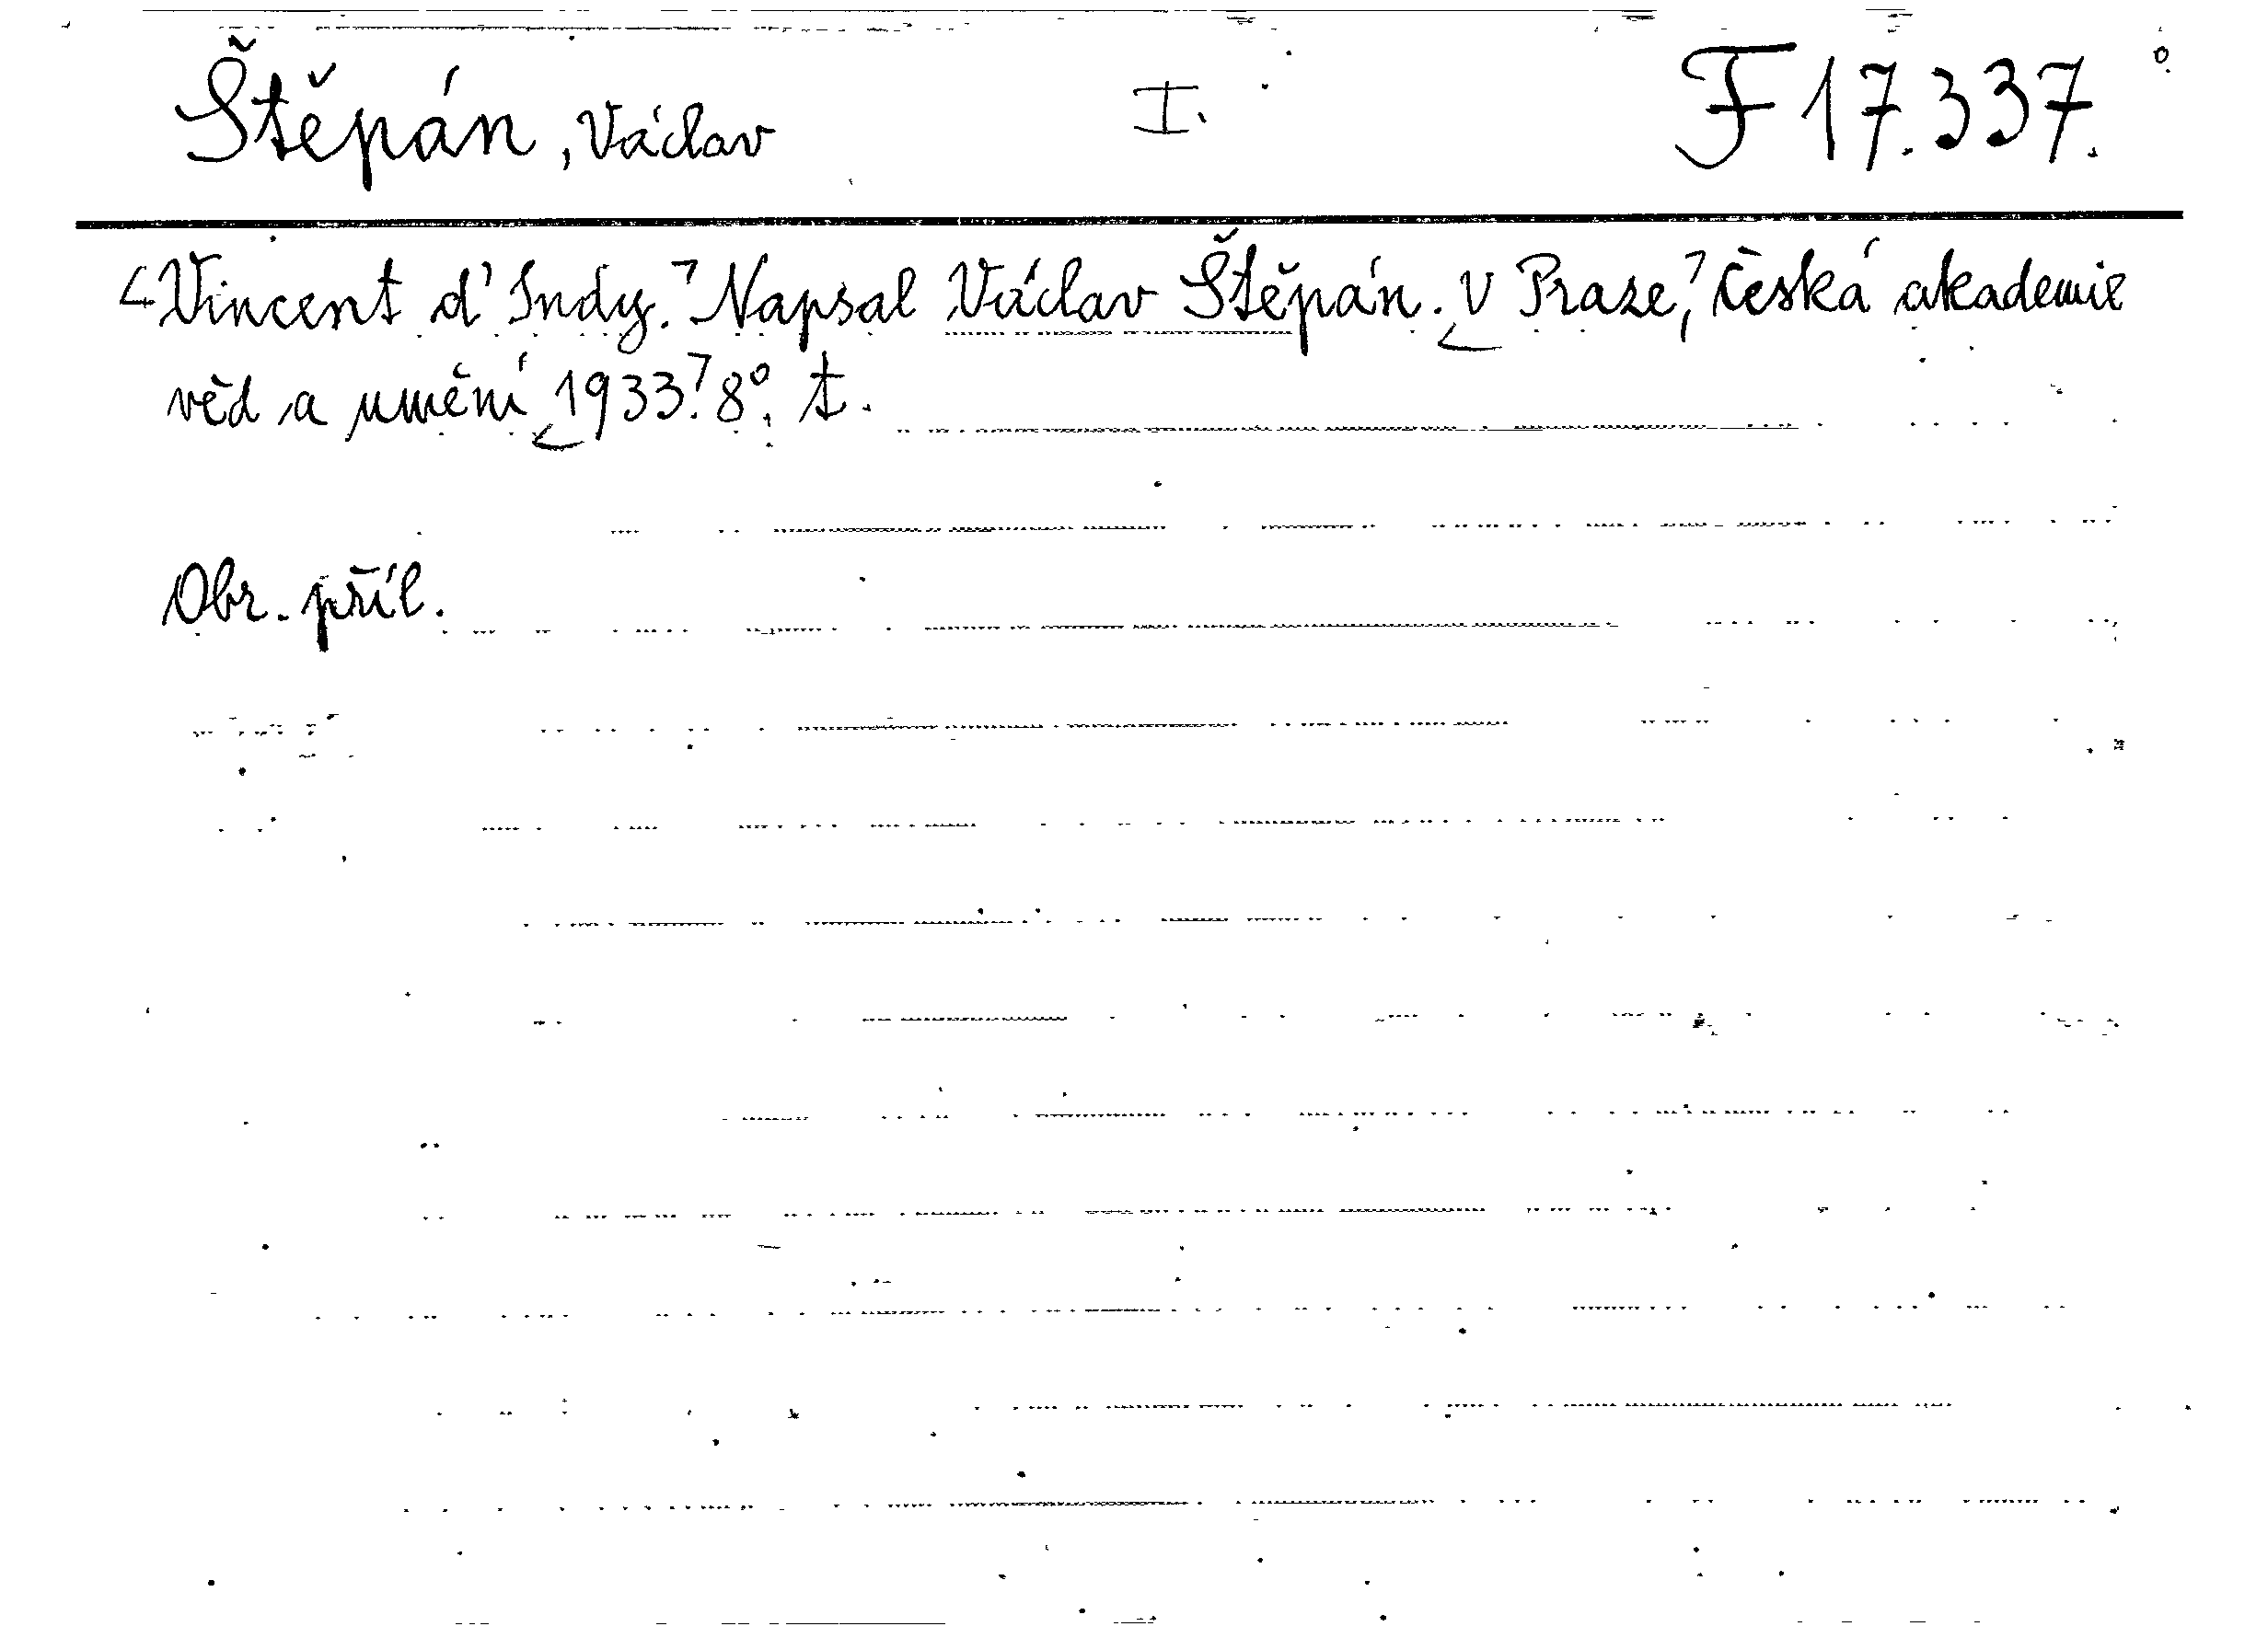 Štěpán, Václav I. F 17.337.
Vincent d'Indy. Napsal Václav Štěpán. V Praze, Česká akademie
věd a umění 1933. 8°. t.
Obr. příl.